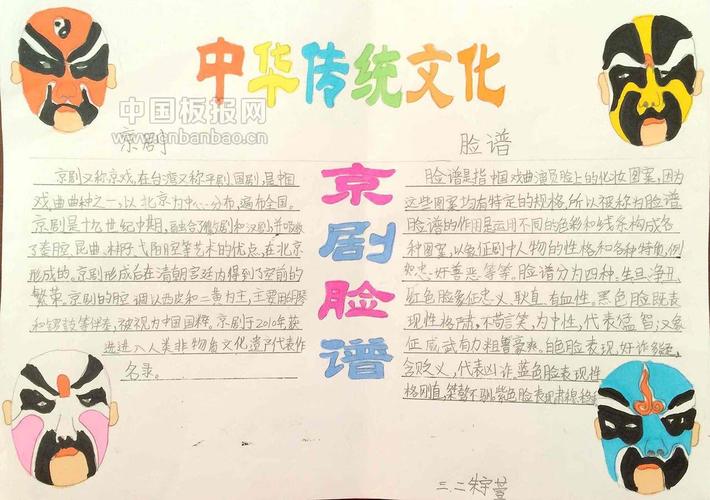 中华传统文化
中国板报网
www.cnbanbao.cn
京剧
京剧又称京戏,在台湾又称平剧、国剧,是中国
戏曲曲种之一,以北京为中心分布,遍布全国。
京剧是十九世纪中期,融合了徽剧和汉剧,并吸收
了秦腔、昆曲、梆子、弋阳腔等艺术的优点,在北京
形成的。京剧形成后在清朝宫廷内得到了空前的
繁荣。京剧的腔调以西皮和二黄为主,主要用胡琴
和锣鼓等伴奏,被视为中国国粹,京剧于2010年获
选进入人类非物质文化遗产代表作
名录。
京剧脸谱
脸谱
脸谱是指中国戏曲演员脸上的化妆图案,因为
这些图案均有特定的规格,所以被称为脸谱
脸谱的作用是运用不同的色彩和线条构成各
种图案,以象征剧中人物的性格和各种特质,例
如忠、奸、善、恶等等。脸谱分为四种。生、旦、净、丑
红色脸象征忠义、耿直、有血性,黑色脸既表
现性格严肃,不苟言笑,为中性,代表猛智,又象
征威武有力、粗鲁豪爽。白色脸表现奸诈多疑,
含贬义,代表凶诈。蓝色脸表现性
格刚直,桀骜不驯,紫色脸表现肃穆
三.二朱宇萱